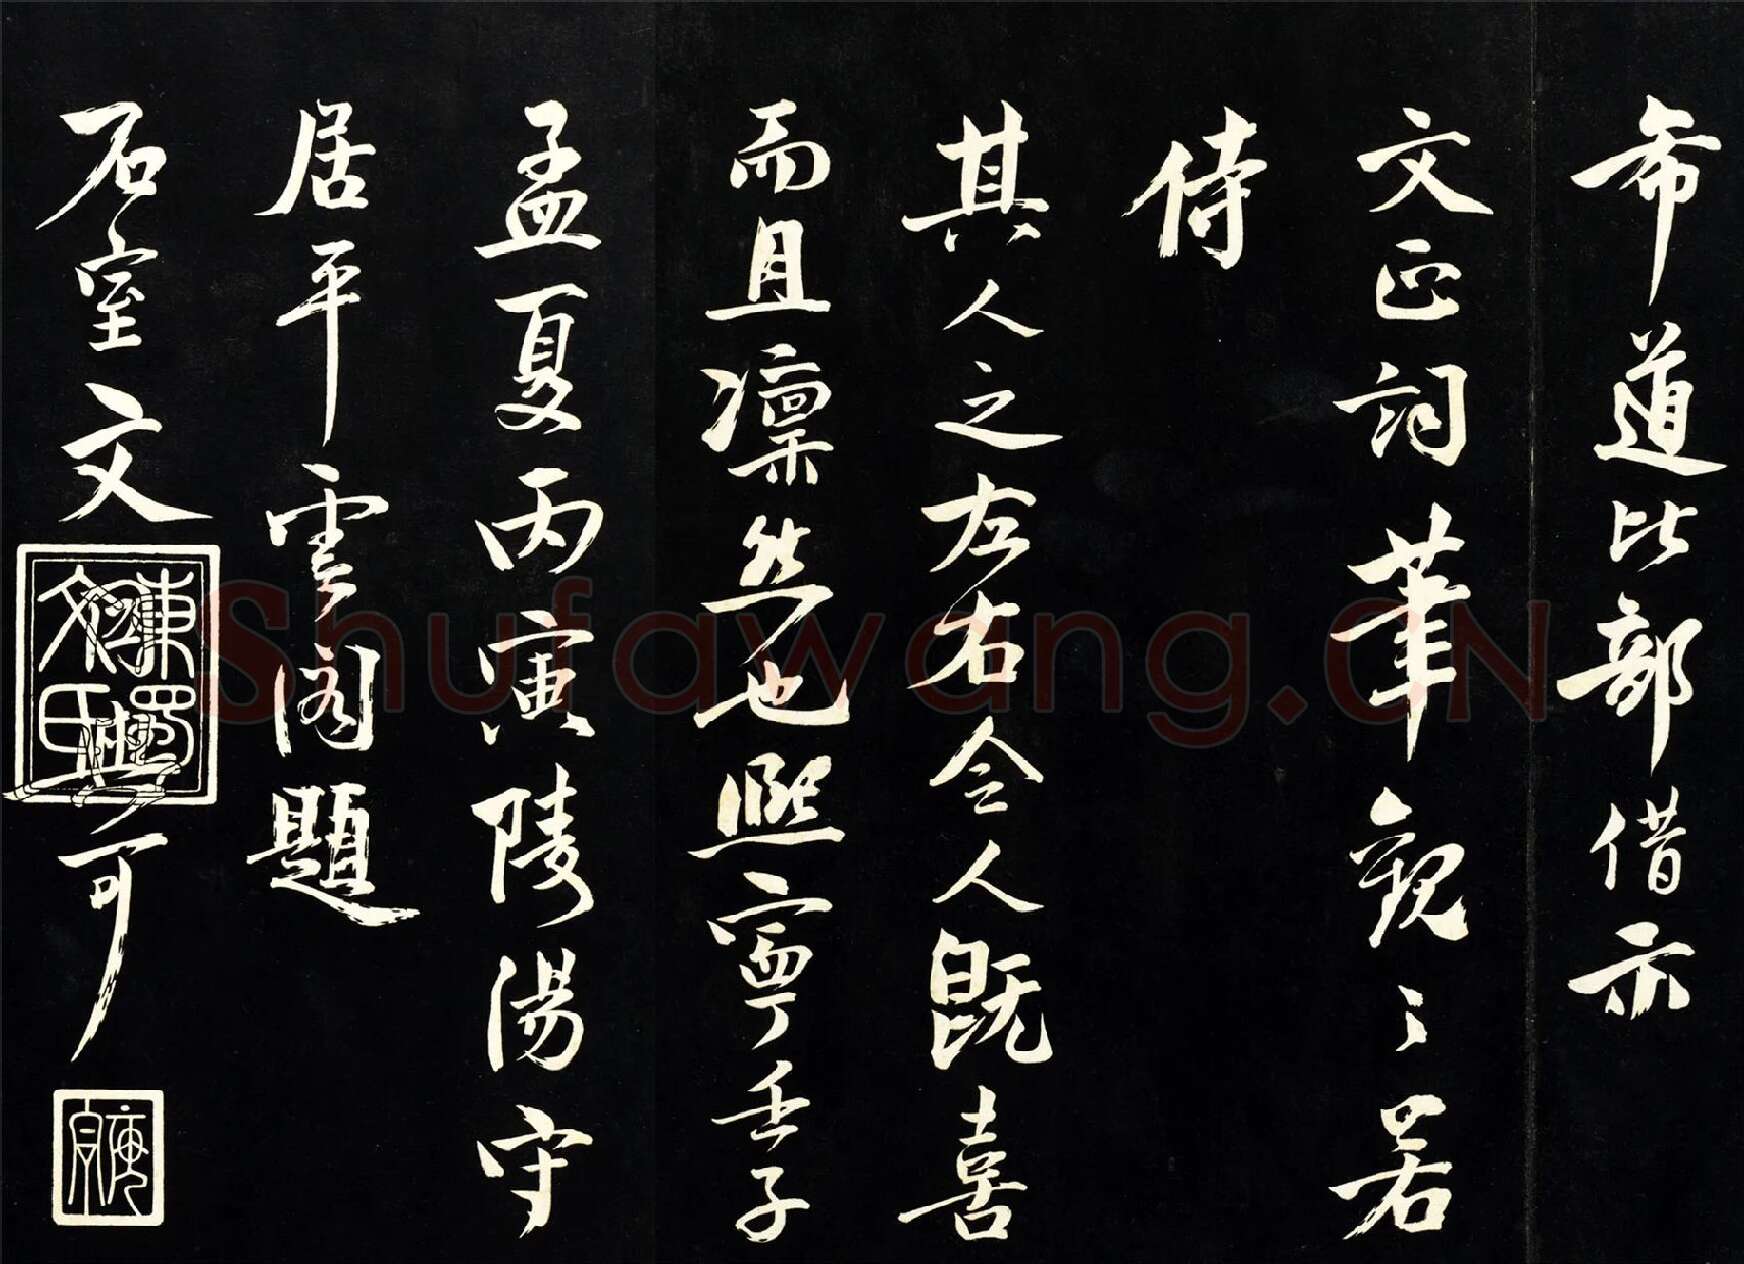 希道比部借示
文正詞筆觀之若
侍
其人之左右令人既喜
而且凜然也熙寧壬子
孟夏丙寅陵陽守
居平雲閣題
石室文
同與可
東蜀文氏
Shufawang.CN